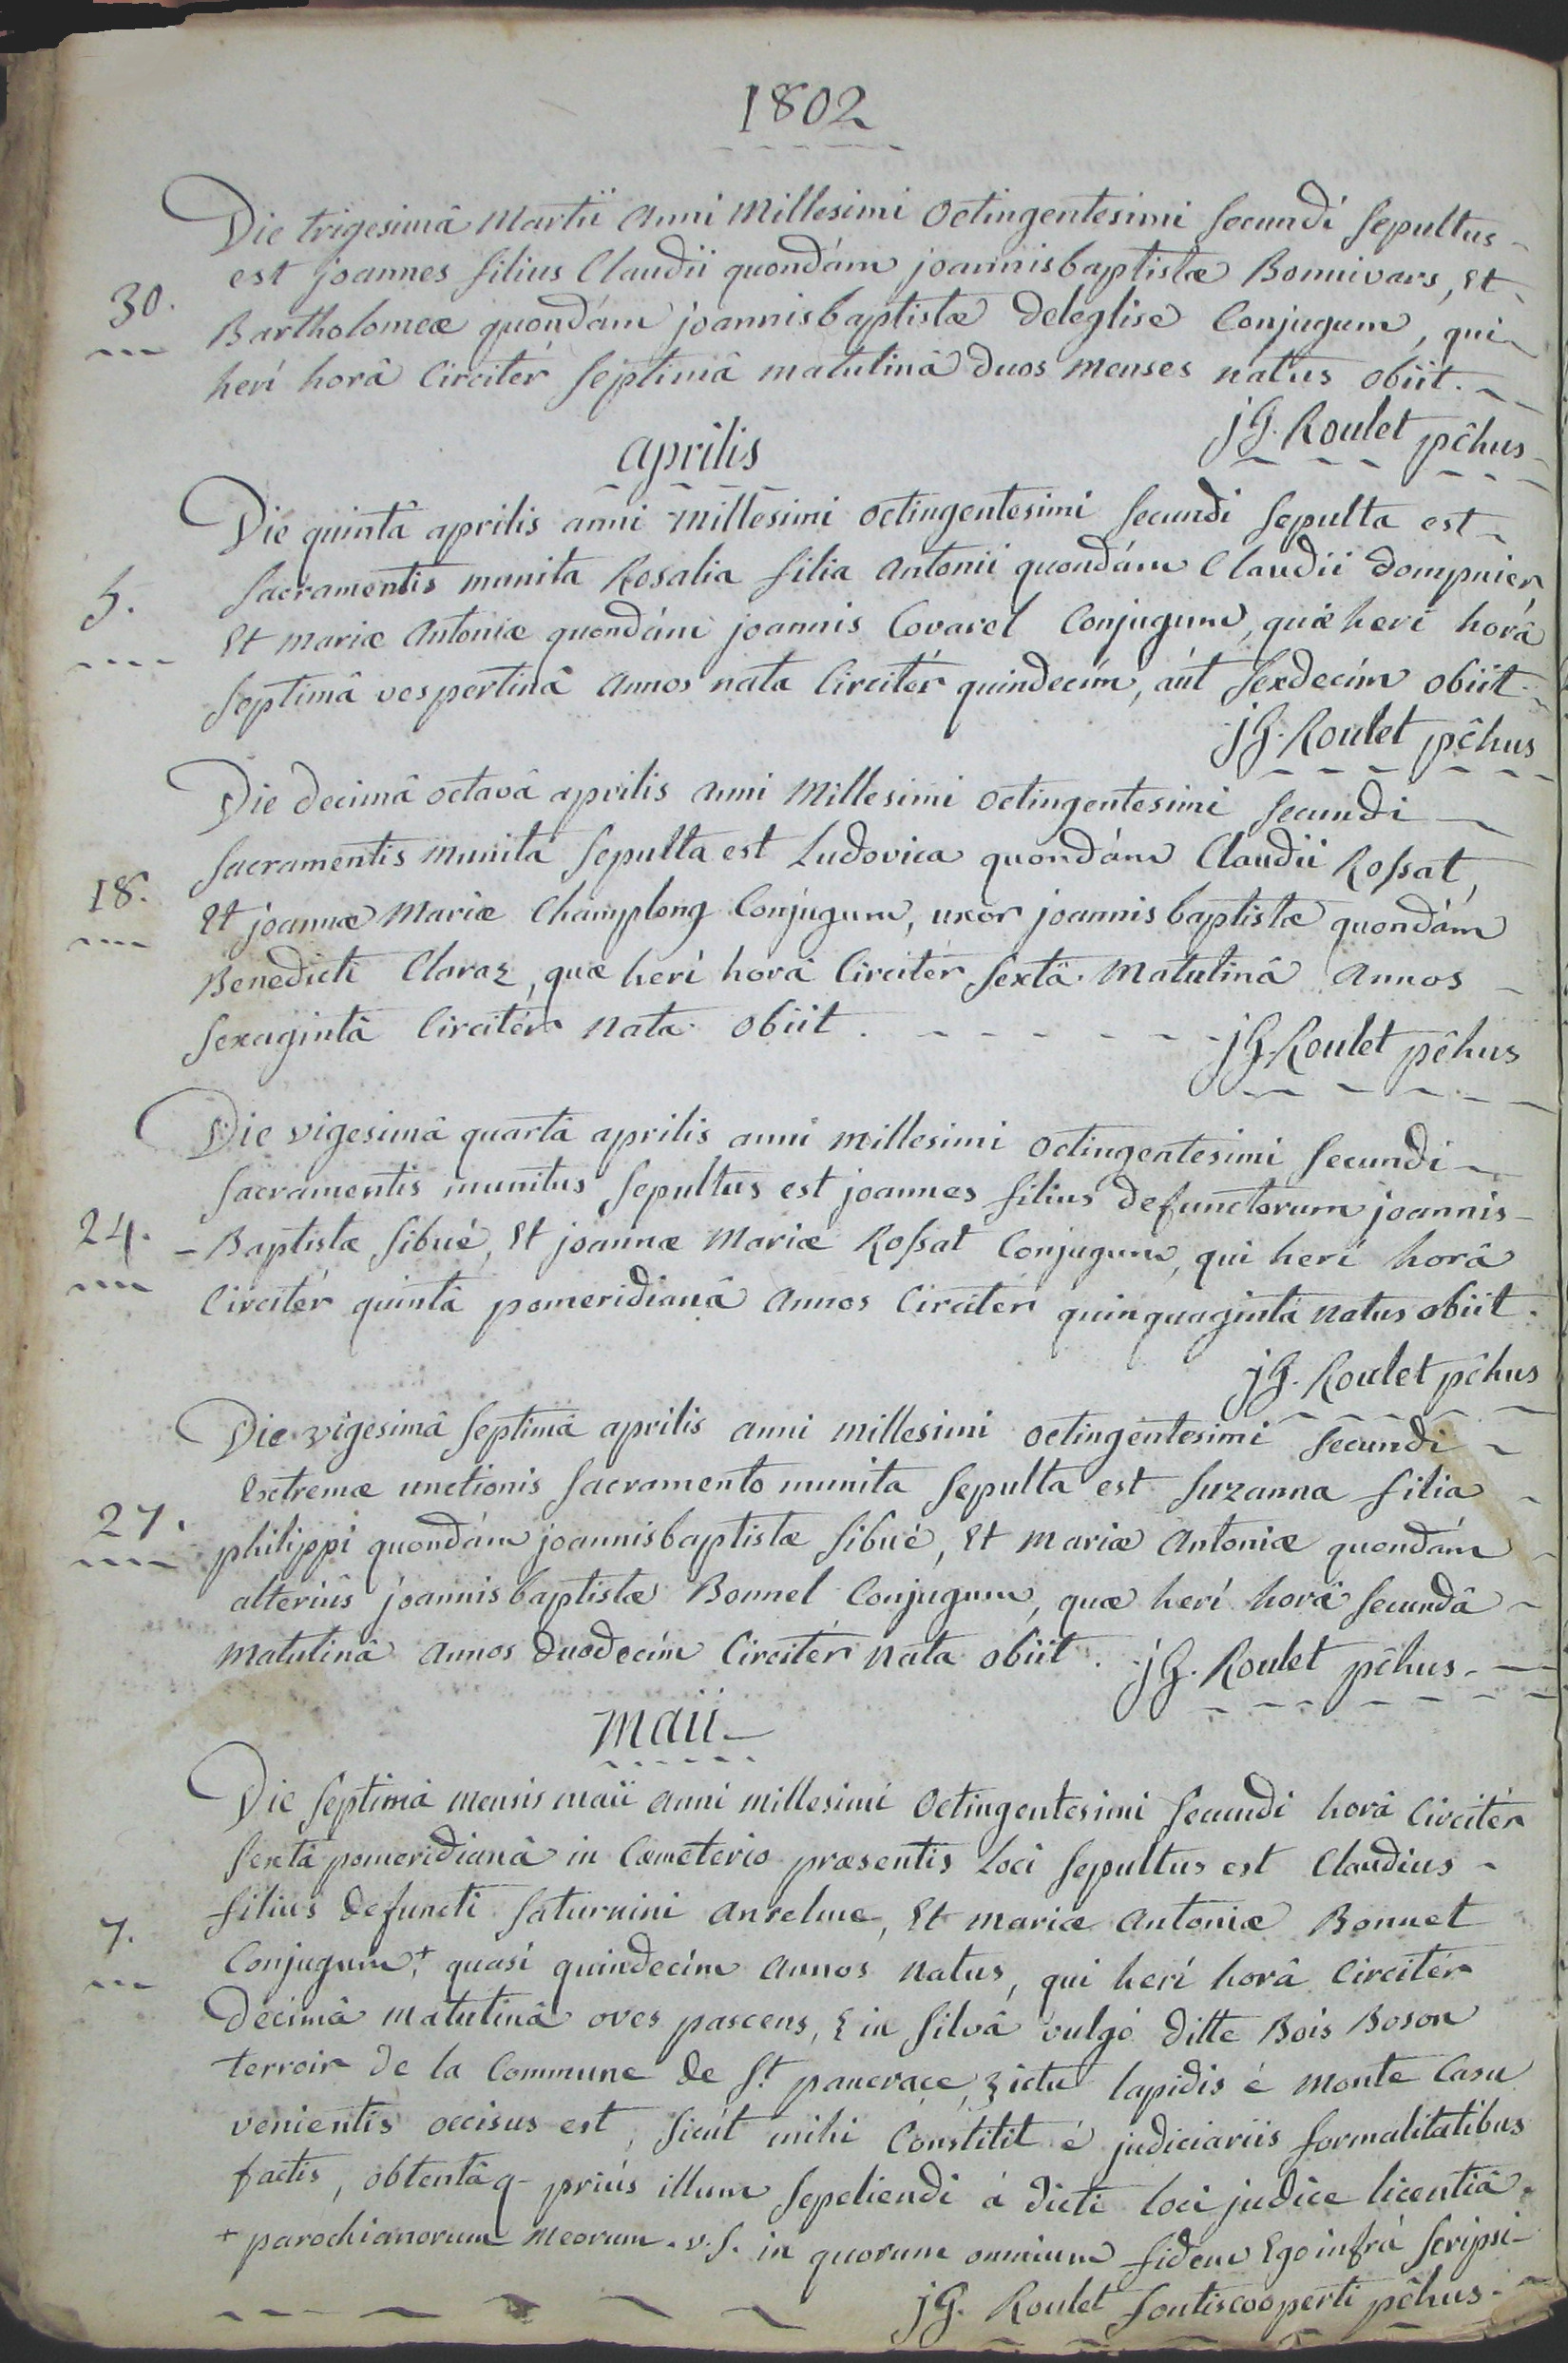 1802
Die trigesimâ Martii anni Millesimi octingentesimi Secundi Sepultus
est joannes filius Claudii quondám joannisbaptistæ Bonnivars, Et
30.
Bartholomeæ quondám joannisbaptistæ Deleglise Conjugum, qui
herí horâ Circitér Septimâ matutinâ duos menses natus obiit.
jG. Roulet pĉhus
aprilis
Die quintâ aprilis anni millesimi octingentesimi Secundi Sepulta est
5.
Sacramentis munita Rosalia filia antonii quondám Claudii Dompnier
Et mariæ antoniæ quondám joannis Covarel Conjugum, quæ herí horâ
Septimâ vespertinâ annos nata Circitér quindecím, aút Sexdecím obiit.
jG. Roulet pĉhus
Die decimâ octavâ aprilis anni Millesimi octingentesimi Secundi
Sacramentis munita Sepulta est Ludovica quondám Claudii Roſsat,
18.
Et joannæ Mariæ Champlong Conjugum, uxor joannisbaptistæ quondám
Benedicti Claraz, quæ herí horâ Circitér Sextâ Matutinâ annos
Sexagintâ Circitér nata obiit.
jG. Roulet pĉhus
Die vigesimâ quartâ aprilis anni millesimi octingentesimi Secundi
Sacramentis munitus Sepultus est joannes filius defunctorum joannis-
24.
-Baptistæ Sibué, Et joannæ Mariæ Roſsat Conjugum, qui herí horâ
Circitér quintâ pomeridianâ annos Circitér quinquagintâ natus obiit.
jG. Roulet pĉhus
Die vigesimâ Septimâ aprilis anni millesimi octingentesimi Secundi
Extremæ unctionis Sacramento munita Sepulta est Suzanna filia
27.
philippi quondám joannisbaptistæ Sibué, Et mariæ antoniæ quondám
alteriûs joannisbaptistæ Bonnel Conjugum, quæ herí horâ Secundâ
Matutinâ annos duodecím Circitér nata obiit. jG. Roulet pĉhus.
maii
Die Septimâ mensis maii anni millesimi octingentesimi Secundi horâ Circitér
Sextâ pomeridianâ in Cæmeterio præsentis Loci Sepultus est Claudius
filius defuncti Saturnini anselme, Et mariæ antoniæ Bonnet
7.
Conjugum,+ quasí quindecím annos natus, qui herí horâ Circitér
decimâ matutinâ oves pascens, & in Silvâ vulgó ditte Bois Boson
terroir de la Commune de St. pancrace, ictu lapidis é monte Casu
venientis occisus est, Sicút mihi Constitit é judiciariis formalitatibus
factis, obtentâq- priús illum Sepeliendi á dicti loci judice licentiâ.
+ parochianorum meorum. v.s. in quorum omnium fidem Ego infrá Scripsi
jG. Roulet fontiscooperti pĉhus.